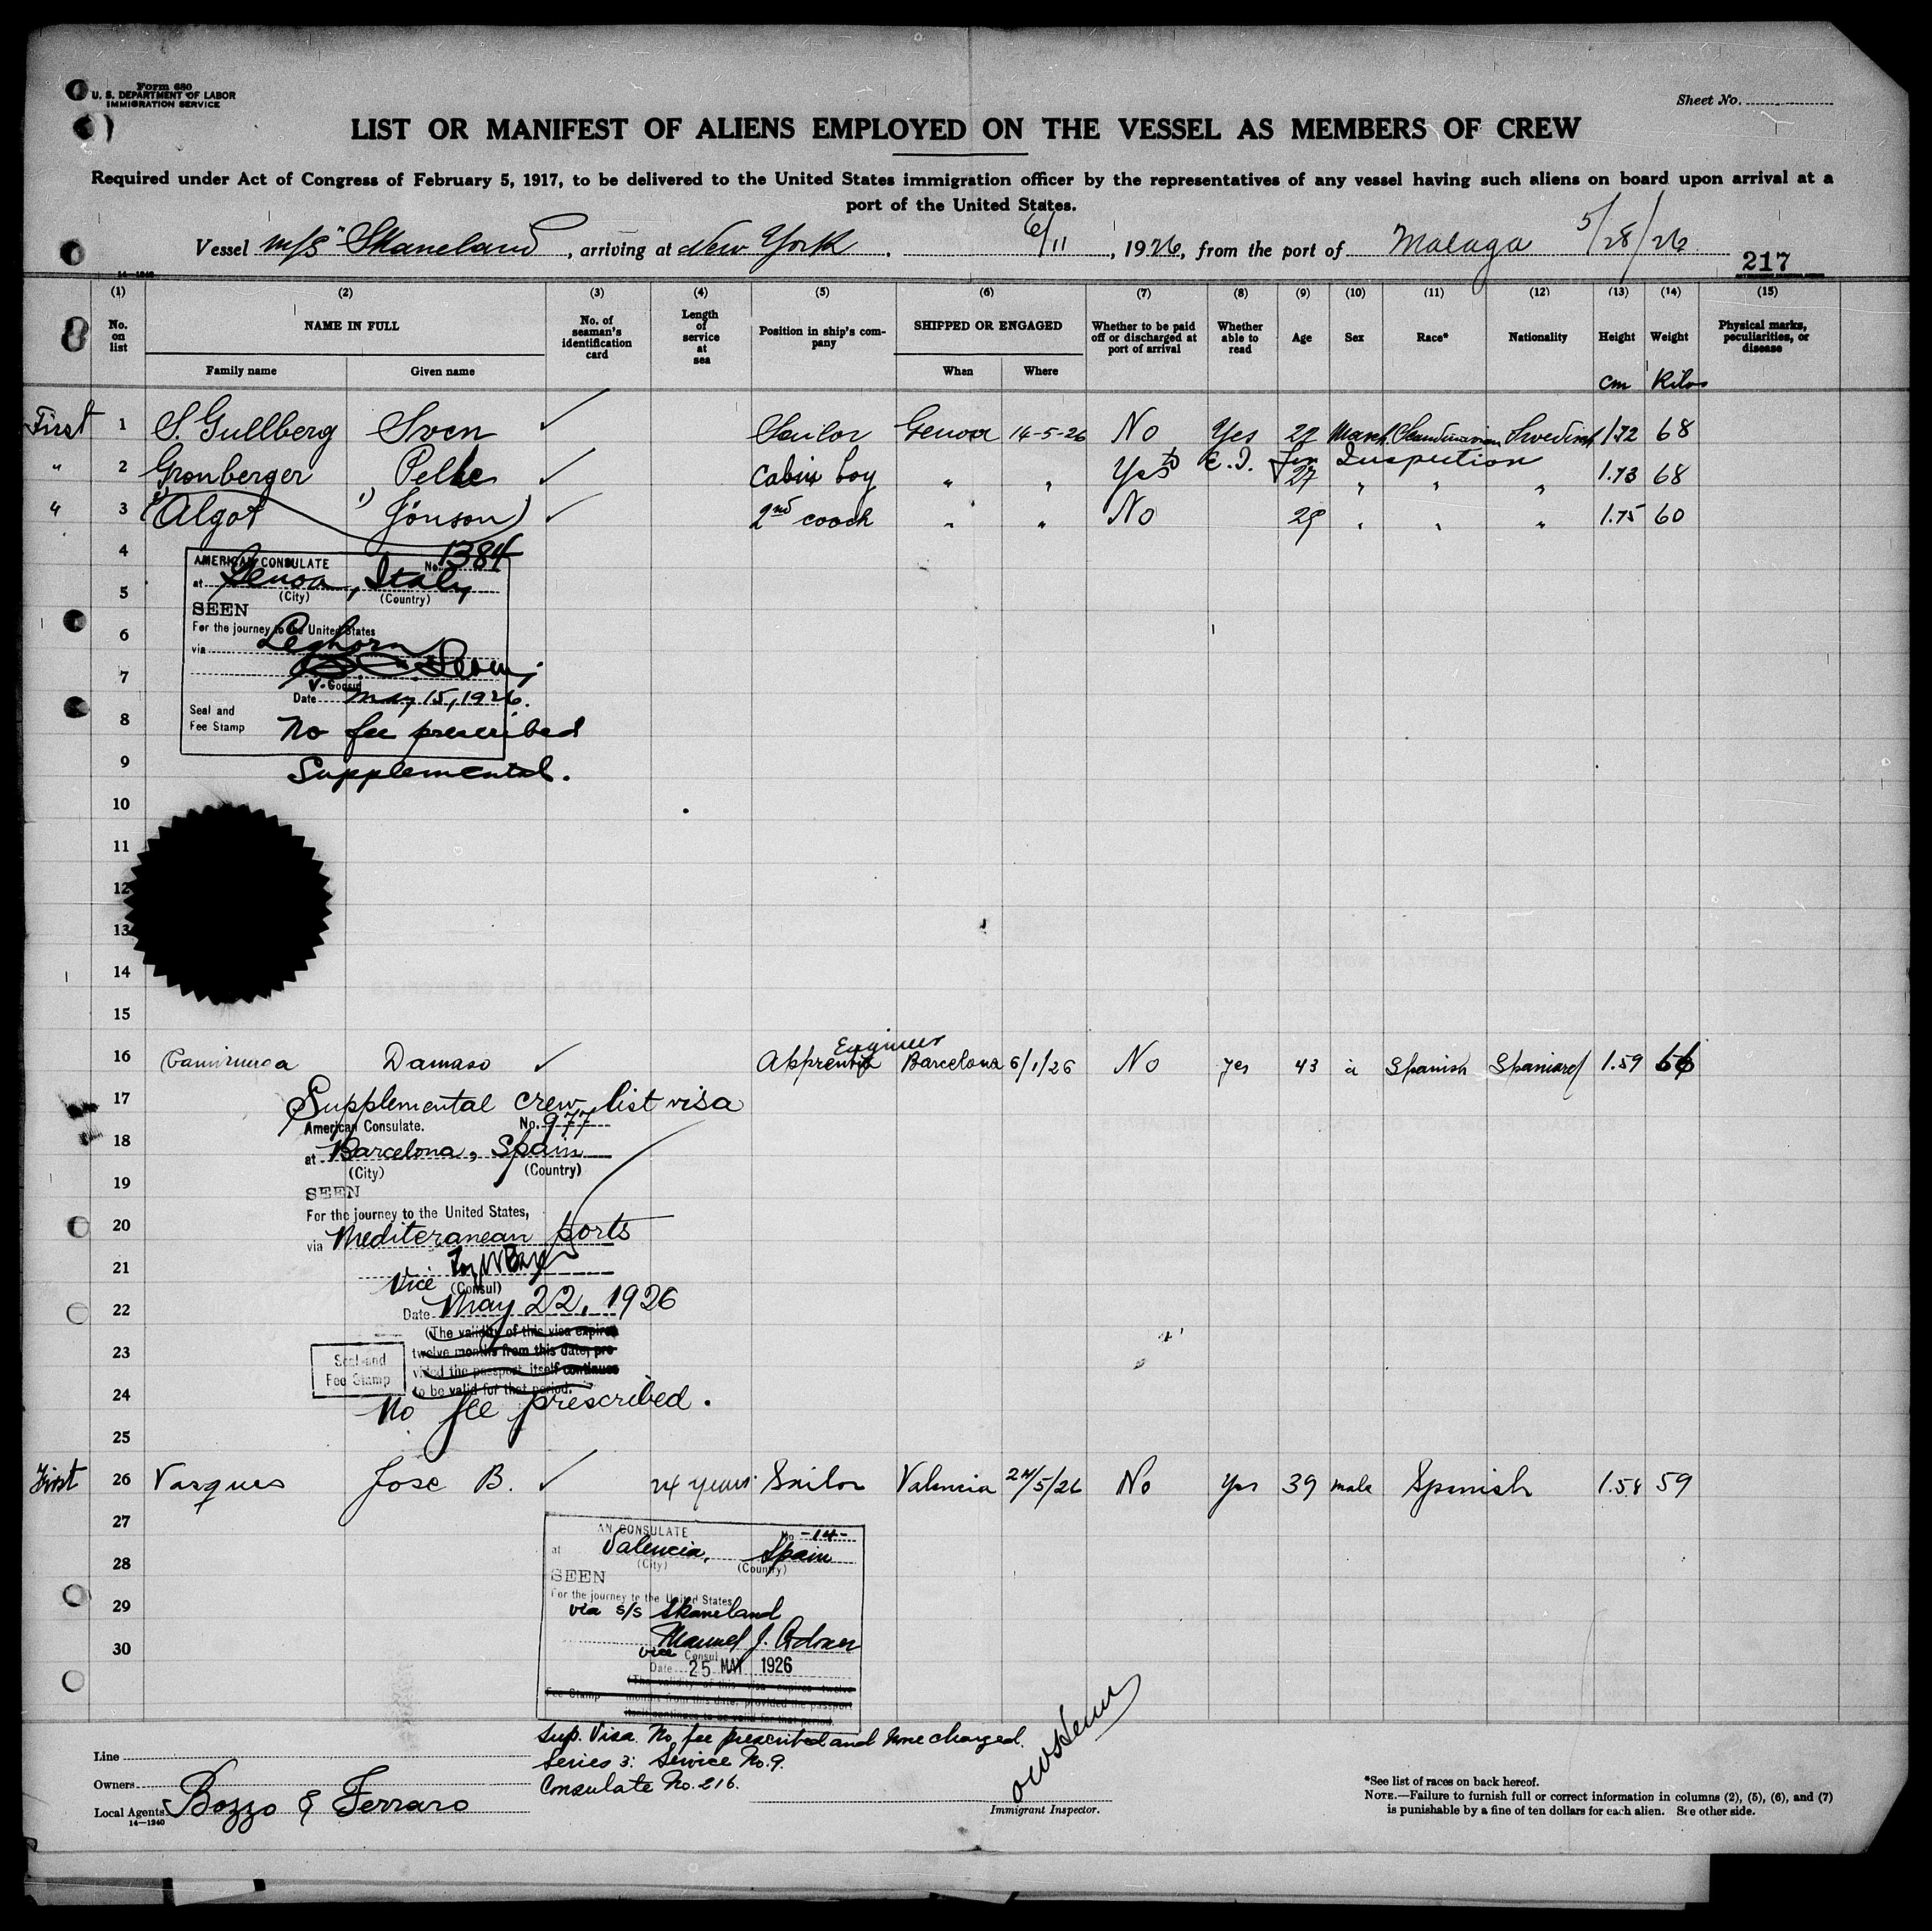 Form 680
U. S. DEPARTMENT OF LABOR
IMMIGRATION SERVICE
Sheet No.
LIST OR MANIFEST OF ALIENS EMPLOYED ON THE VESSEL AS MEMBERS OF CREW
Required under Act of Congress of February 5, 1917, to be delivered to the United States immigration officer by the representatives of any vessel having such aliens on board upon arrival at a
port of the United States.
Vessel m/s "Skaneland, arriving at New York, 6/11, 1926, from the port of Malaga 5/28/26
217
14-1240
(1) (2) (3) (4) (5) (6) (7) (8) (9) (10) (11) (12) (13) (14) (15)
No. on list NAME IN FULL No. of seaman's identification card Length of service at sea Position in ship's company SHIPPED OR ENGAGED Whether to be paid off or discharged at port of arrival Whether able to read Age Sex Race* Nationality Height Weight Physical marks, peculiarities, or disease
Family name Given name When Where cm Kilos
First 1 S. Gullberg Sven ✓ Sailor Genoa 14-5-26 No Yes Scandinavian Swedish 1.72 68
to E. I. for Inspection
" 2 Gronberger Pelle ✓ Cabin boy " " Yes 27 " " " 1.73 68
" 3 (Algot Jönson) ✓ 2nd coock " " No 29 " " " 1.75 60
4
AMERICAN CONSULATE No. 1384
at Genoa, Italy
5
(City) (Country)
SEEN
6
For the journey to the United States
via Leghorn
7
V. Consul
Date May 15, 1926.
8
Seal and
Fee Stamp No fee prescribed
9
Supplemental.
10
11
12
13
14
15
Engineer
16 Damaso ✓ Apprentice Barcelona 6/1/26 No yes 43 a Spanish Spaniard 1.59
17 Supplemental crew list visa
American Consulate. No. 977
18
at Barcelona, Spain
(City) (Country)
19
SEEN
For the journey to the United States,
20
via Mediteranean ports
21
Vice (Consul)
22
Date May 22, 1926
(The validity of this visa expires
23
twelve months from this date, pro-
vided the passport itself continues
to be valid for that period.
Seal and
Fee Stamp
24
No fee prescribed.
25
First 26 Vasques Jose B. ✓ 24 years Sailor Valencia 24/5/26 No Yes 39 male Spanish 1.58 59
27
AN CONSULATE No -14-
at Valencia, Spain
28
(City) (Country)
SEEN
For the journey to the United States
29
via s/s Skaneland
Manuel J.
30
vice Consul
Date 25 MAY 1926
(The validity of this visa expires twelve
Fee Stamp months from this date, provided the passport
itself continues to be valid for that period.
Sup. Visa. No fee prescribed and none charged.
Series 3: Service No. 9.
Consulate No. 216.
Line
Owners
Local Agents Bozzo & Ferraro
14-1240
Immigrant Inspector.
*See list of races on back hereof.
NOTE.—Failure to furnish full or correct information in columns (2), (5), (6), and (7)
is punishable by a fine of ten dollars for each alien. See other side.